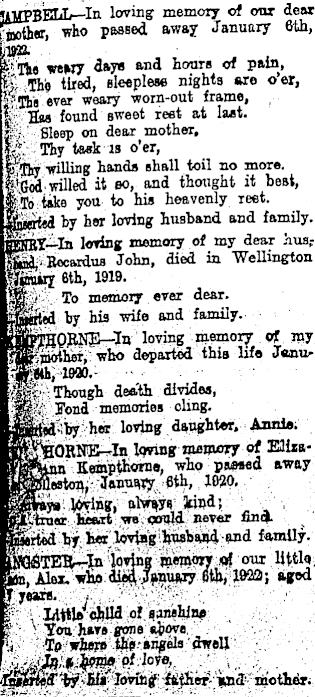 CAMPBELL—In loving memory of our dear
mother, who passed away January 6th,
1922.
The weary days and hours of pain,
The tired, sleepless nights are o'er,
The ever weary worn-out frame,
Has found sweet rest at last.
Sleep on dear mother,
Thy task is o'er,
Thy willing hands shall toil no more.
God willed it so, and thought it best,
To take you to his heavenly rest.
Inserted by her loving husband and family.
HENRY—In loving memory of my dear hus-
band, Rocardus John, died in Wellington
January 6th, 1919.
To memory ever dear.
Inserted by his wife and family.
KEMPTHORNE—In loving memory of my
mother, who departed this life Janu-
6th, 1920.
Though death divides,
Fond memories cling.
Inserted by her loving daughter, Annie.
HORNE—In loving memory of Eliza-
Ann Kempthorne, who passed away
January 6th, 1920.
Always loving, always kind;
A truer heart we could never find.
Inserted by her loving husband and family.
In loving memory of our little
son, Alex. who died January 6th, 1922; aged
years.
Little child of sunshine
You have gone above
To where the angels dwell
In a home of love.
Inserted by his loving father and mother.